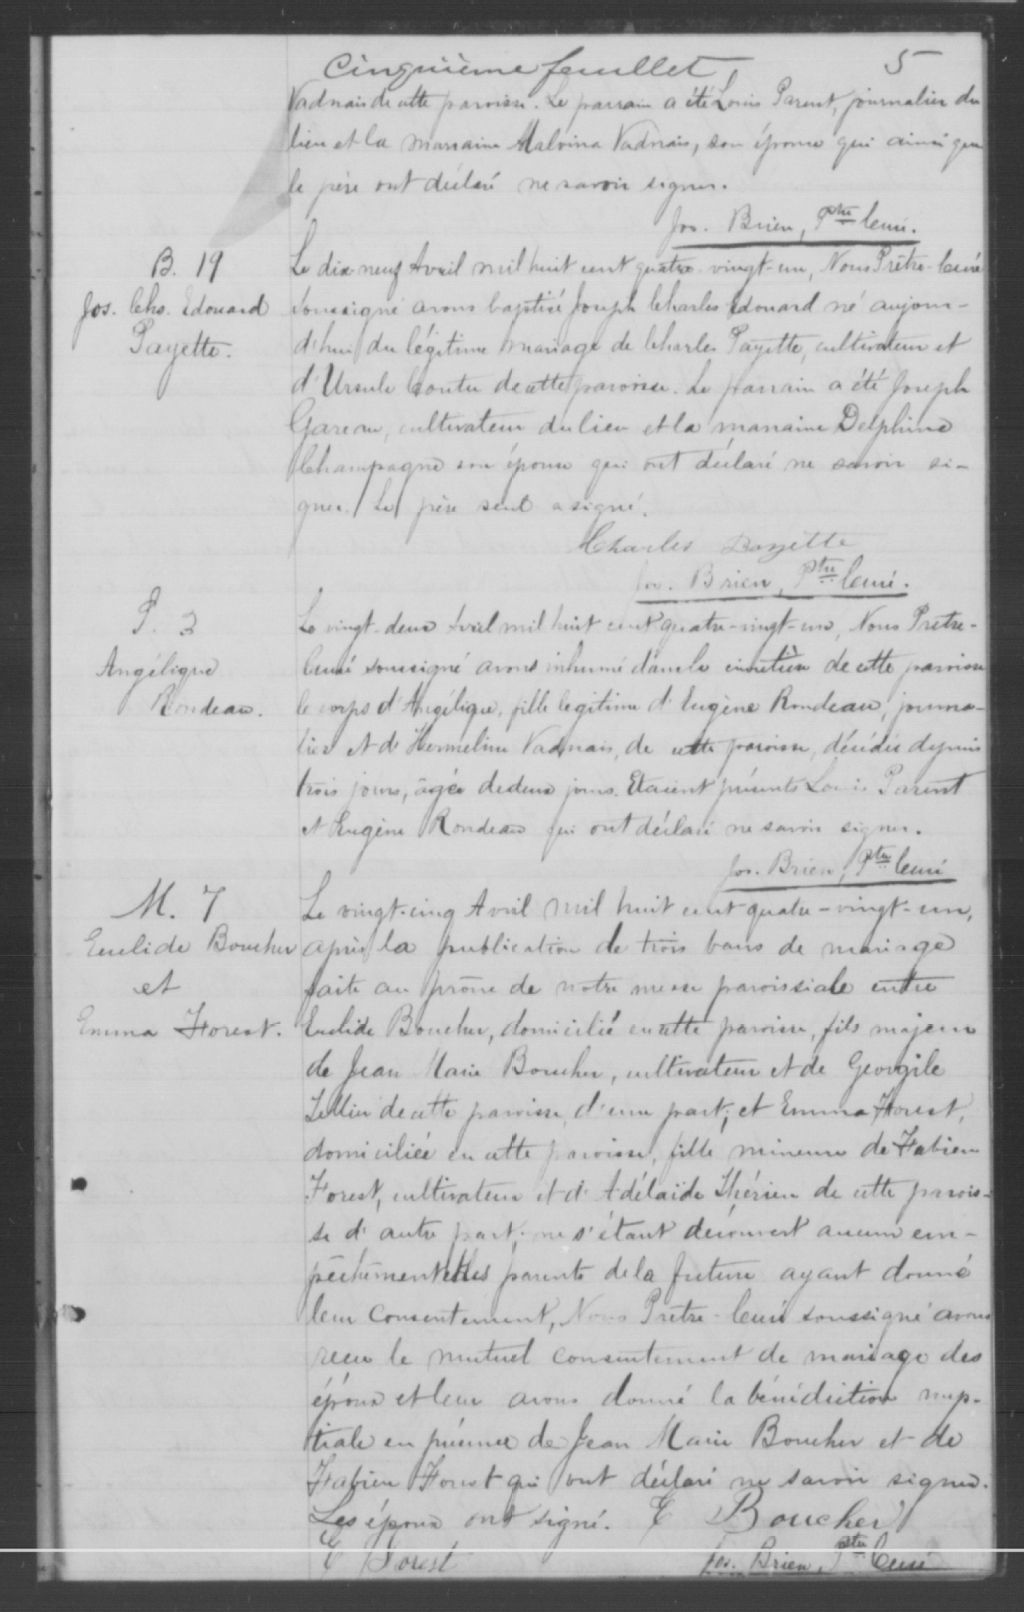 Cinquième feuillet 5
Vadnais de cette paroisse. Le parrain a été Louis Parent, journalier du
lieu et la marraine Malvina Vadnais, son épouse qui ainsi que
le père ont déclaré ne savoir signer.
Jos. Brien, Ptre Curé.
B. 19
Jos. Chs. Edouard
Payette.
Le dix-neuf Avril mil huit cent quatre-vingt-un, Nous Prêtre-Curé
soussigné avons baptisé Joseph Charles Edouard né aujour-
d'hui du légitime mariage de Charles Payette, cultivateur et
d'Ursule Coutu de cette paroisse. Le parrain a été Joseph
Gareau, cultivateur du lieu et la marraine Delphine
Champagne son épouse qui ont déclaré ne savoir si-
gner. Le père seul a signé.
Charles Payette
Jos. Brien, Ptre Curé.
S. 3
Angélique
Rondeau.
Le vingt-deux Avril mil huit cent quatre-vingt-un, Nous Prêtre-
Curé soussigné avons inhumé dans le cimetière de cette paroisse
le corps d'Angélique, fille légitime d'Eugène Rondeau, journa-
lier et d'Hermeline Vadnais, de cette paroisse, décédée depuis
trois jours, âgée de deux jours. Etaient présents Louis Parent
et Eugène Rondeau qui ont déclaré ne savoir signer.
Jos. Brien, Ptre Curé
M. 7
Euclide Boucher
et
Emma Forest.
Le vingt-cinq Avril mil huit cent quatre-vingt-un,
après la publication de trois bans de mariage
faite au prône de notre messe paroissiale entre
Euclide Boucher, domicilié en cette paroisse, fils majeur
de Jean Marie Boucher, cultivateur et de Georgile
Tellier de cette paroisse, d'une part; et Emma Forest,
domiciliée en cette paroisse, fille mineure de Fabien
Forest, cultivateur et d'Adélaïde Thérien de cette parois-
se d'autre part; ne s'étant découvert aucun em-
pêchement et les parents de la future ayant donné
leur consentement, Nous Prêtre-Curé soussigné avons
reçu le mutuel consentement de mariage des
époux et leur avons donné la bénédiction nup-
tiale en présence de Jean Marie Boucher et de
Fabien Forest qui ont déclaré ne savoir signer.
Les époux ont signé. E Boucher
E Forest
Jos. Brien, Ptre Curé